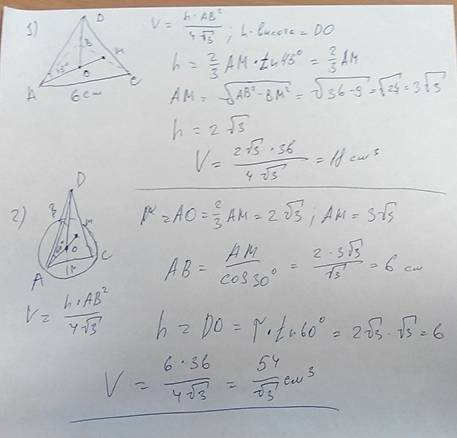 1)
D
B
M
45°
O
A
C
6 cm
V = h·AB² / 4√3 ; h-высота = DO
h = 2/3 AM · tn 45° = 2/3 AM
AM = √AB²-BM² = √36-9 = √27 = 3√3
h = 2√3
V = 2√3·36 / 4√3 = 18 cm³
2)
D
B
M
O
A
C
r = AO = 2/3 AM = 2√3 ; AM = 3√3
AB = AM / cos 30° = 2·3√3 / √3 = 6 cm
V = h·AB² / 4√3
h = DO = r·tn 60° = 2√3·√3 = 6
V = 6·36 / 4√3 = 54 / √3 cm³